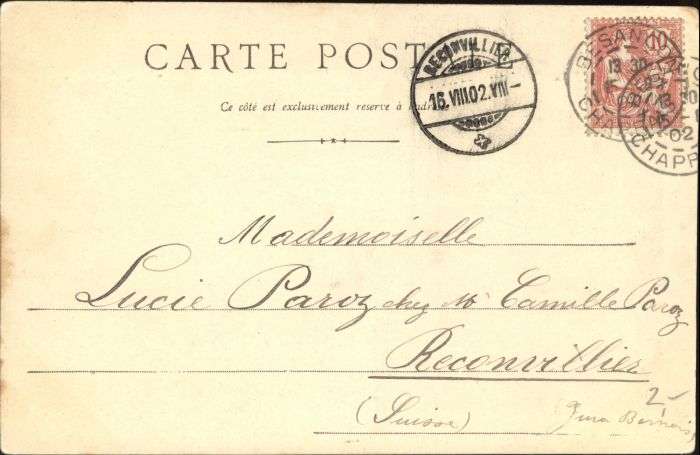 CARTE POST
RECONVILLIER
16.VIII.02.VIII-
BESANÇON
13 30
02
CHAPR
10
Ce côté est exclusivement réservé à l'adr
Mademoiselle
Lucie Paroz chez Mr Camille Paroz
Reconvillier
2-
(Suisse) (Jura Bernois)